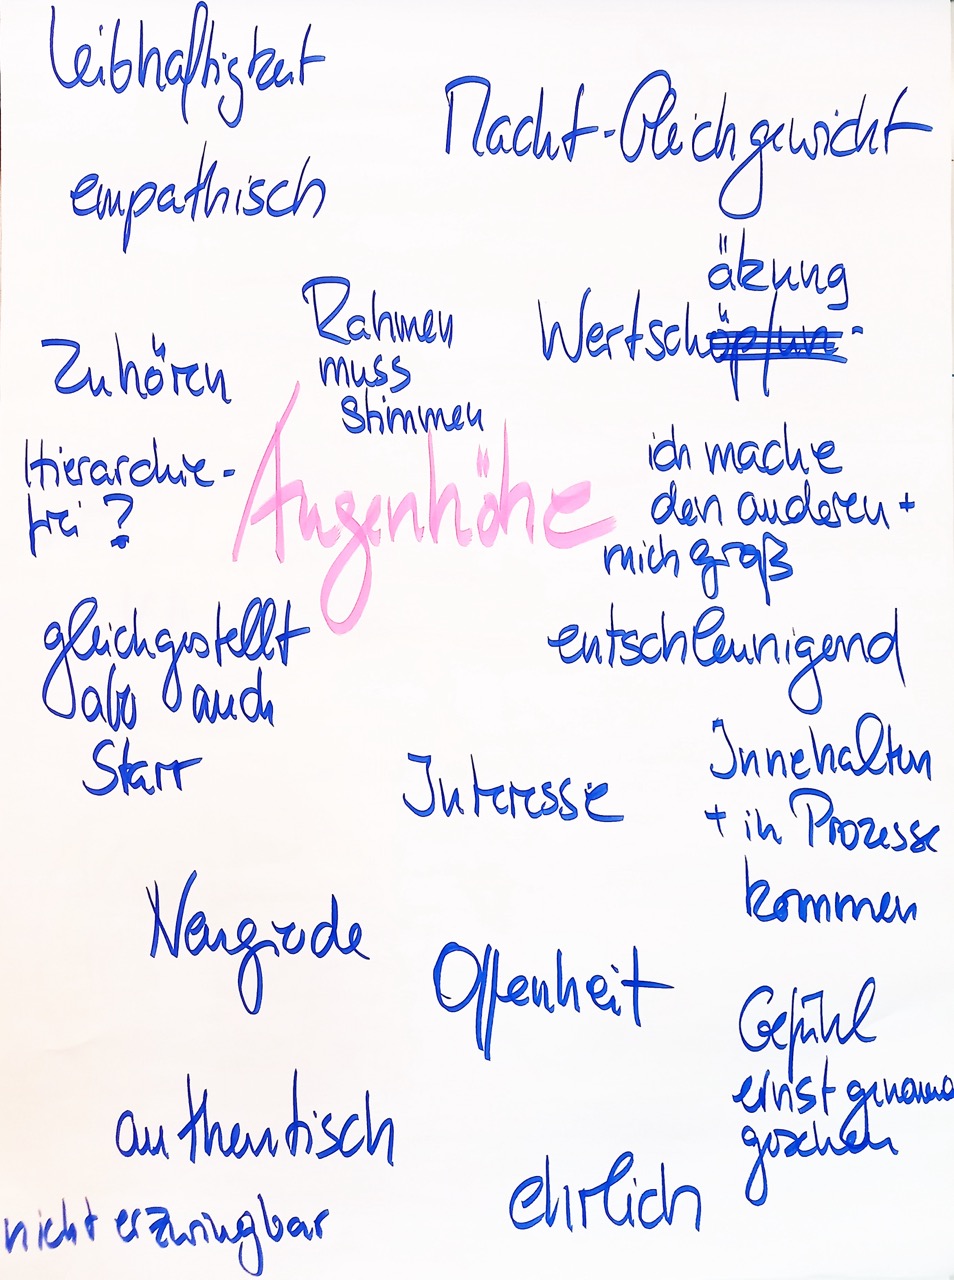 Leibhaftigkeit
Macht-Gleichgewicht
empathisch
ätzung
Wertschöpfun-
Rahmen
muss
stimmen
Zuhören
Hierarchie-
frei?
Augenhöhe
ich mache
den anderen +
mich groß
gleichgestellt
aber auch
Starr
entschleunigend
Innehalten
+ in Prozesse
kommen
Interesse
Neugierde
Offenheit
Gefühl
ernst genomm
gesehen
authentisch
ehrlich
nicht erzwingbar